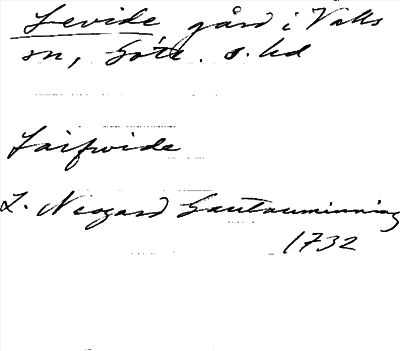 Levide gård i Valls
sn, Götl. s. hd
Laifwide
L. Neogard Gautauminning
1732